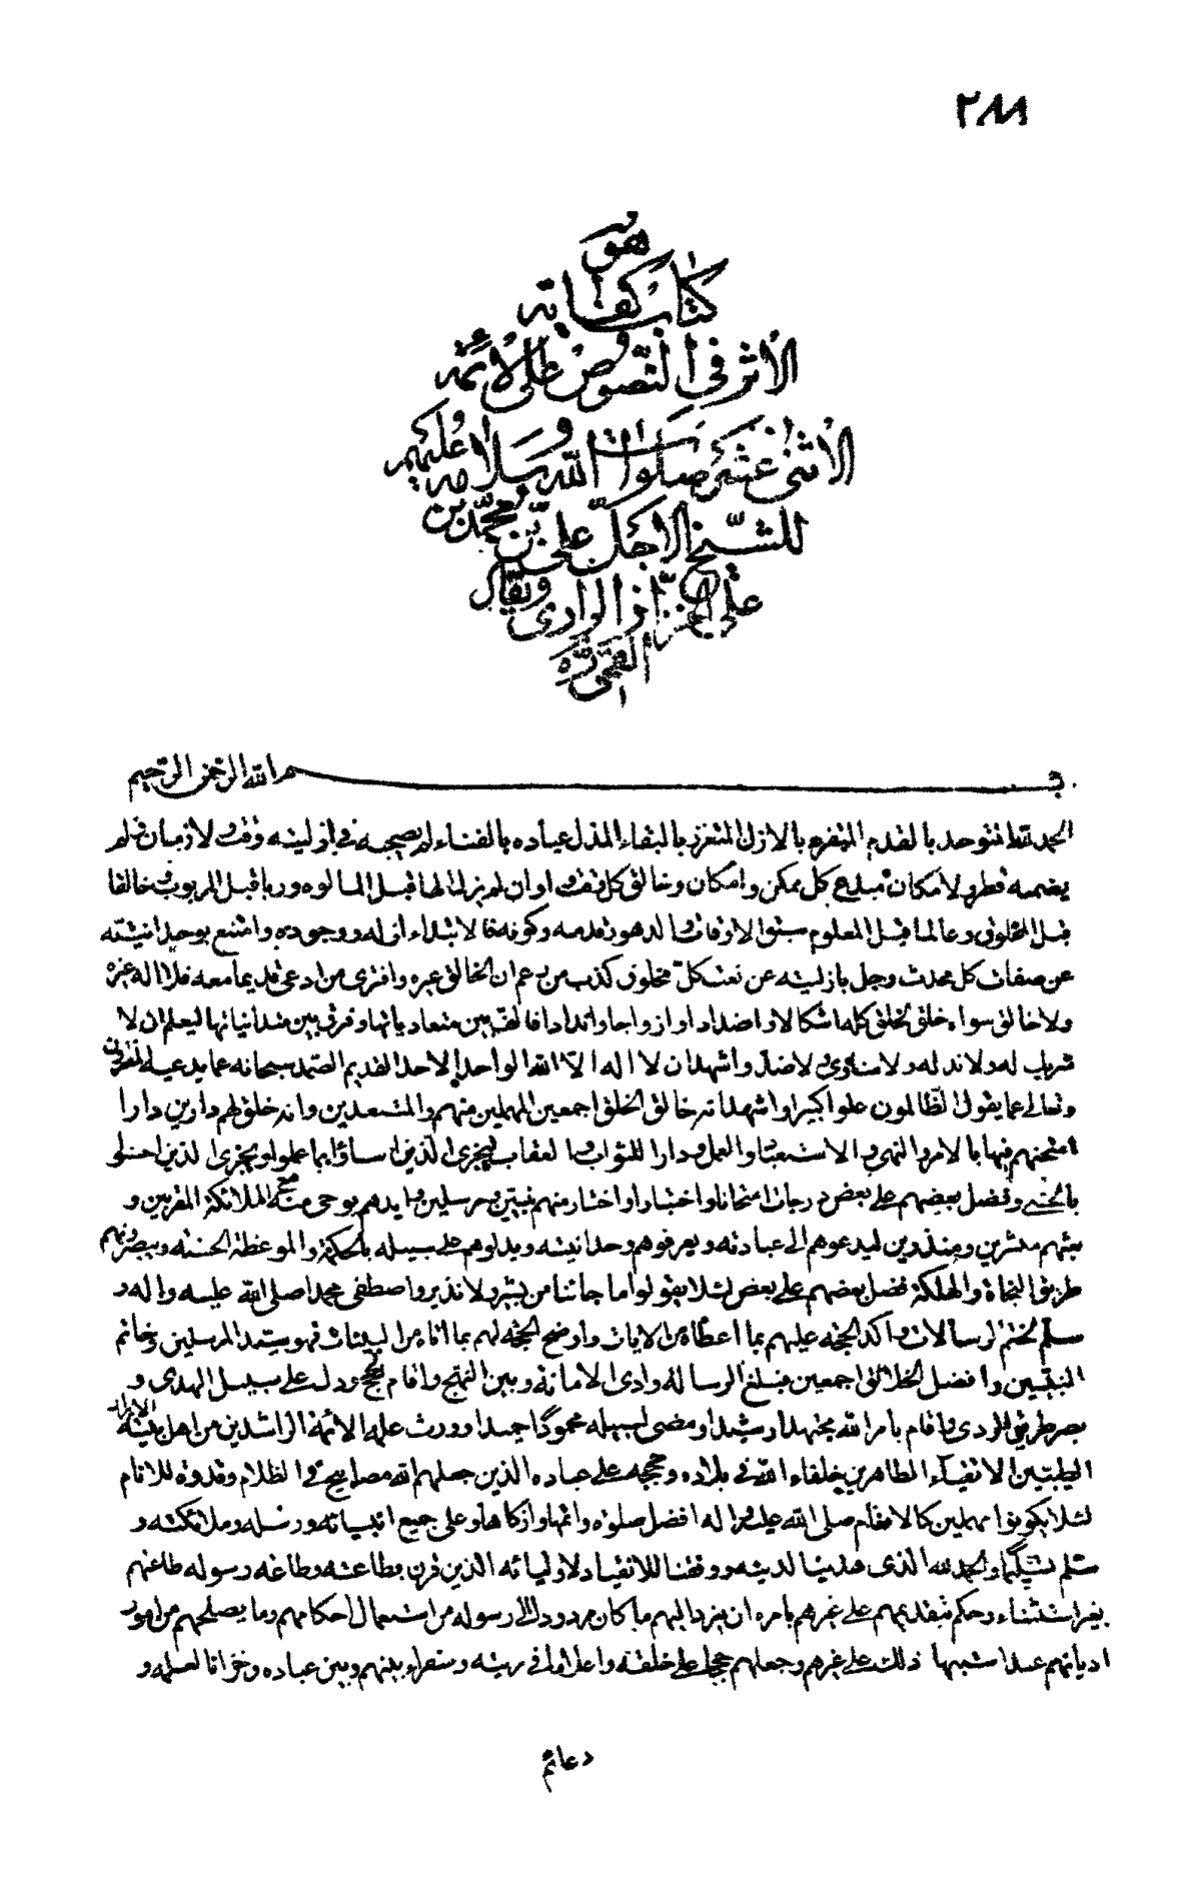 ٢٨٨
هو
كتاب كفاية
الأثر في النصوص على الأئمة
الأثني عشر صلوات الله وسلامه عليهم
للشيخ الاجل علي بن محمد بن
علي الخزاز الرازي ويقال
القمي ره
بسم الله الرحمن الرحيم
الحمد لله المتوحد بالقدم المتفرد بالازل المتعزز بالبقاء المذل عباده بالفناء لم يصحبه في اوليته وقت ولا زمان ولم
يضمه قطر ولا مكان مبدع كل ممكن وامكان وخالق كل وقت واوان لم يزل الها قبل المالوه وربا قبل المربوب وخالقا
قبل المخلوق وعالما قبل المعلوم سبق الاوقات والدهور قدمه وكونه فلا ابتداء ازله ووجوده وامتنع بوحدانيته
عن صفات كل محدث وجل بازليته عن نعت كل مخلوق كذب من زعم ان الخالق غيره وافترى من ادعى قديما معه فلا اله غيره
ولا خالق سواه خلق الخلق كله اشكالا واضدادا وازواجا واندادا فالف بين متعادياتها وفرق بين متدانياتها ليعلم ان لا
شريك له ولا ند له ولا مناوئ ولا ضد واشهد ان لا اله الا الله الواحد الاحد القديم الصمد سبحانه عما يدعيه المفترون
وتعالى عما يقول الظالمون علوا كبيرا واشهد انه خالق الخلق اجمعين المهملين منهم والمتعبدين وانه خلق لهم دارين دارا
امتحنهم فيها بالامر والنهي والاستعباد والعمل ودارا للثواب والعقاب ليجزى الذين اساؤا بما عملوا ويجزى الذين احسنوا
بالحسنى وفضل بعضهم على بعض درجات امتحانا واختبارا واختار منهم نبيين ومرسلين وايدهم بوحي منه مع الملائكة المقربين و
بعثهم مبشرين ومنذرين ليدعوهم الى عبادته ويعرفوهم وحدانيته ويدلوهم على سبيله بالحكمة والموعظة الحسنة ويبصرونهم
طريق النجاة والهلكة فضل بعضهم على بعض لئلا يقولوا ما جائنا من بشير ولا نذير واصطفى محمدا صلى الله عليه واله و
سلم لختم الرسالات واكد الحجة عليهم بما اعطاه من الايات واوضح الحجة لهم بما اتاه من البينات فهو سيد المرسلين وخاتم
النبيين وافضل الخلائق اجمعين فبلغ الرسالة وادى الامانة وبين النهج واقام الحجج ودل على سبيل الهدى و
بصر طريق الردى واقام بامر الله مجتهدا رشيدا ومضى لسبيله محمودا حميدا وورث علمه الائمة الراشدين من اهل بيته الابرار
الطيبين الاتقياء الطاهرين خلفاء الله في بلاده وحججه على عباده الذين جعلهم الله مصابيح في الظلام وقدوة للانام
لئلا يكونوا مهملين كالانعام صلى الله عليه واله افضل صلوة واتمها وازكاها وعلى جميع انبيائه ورسله وملائكته و
سلم تسليما والحمد لله الذي هدينا لدينه ووفقنا للانقياد لاوليائه الذين قرن بطاعته وطاعة رسوله طاعتهم
بغير استثناء وحكم بتقديمهم على غيرهم بامره ان يرد اليهم ما كان مردودا الى رسوله من استعمال احكامهم وما يصلحهم من امور
اديانهم عندما شبهها ذلك على غيرهم وجعلهم حججا على خلقه واعلاما في بريته وسفراء بينهم وبين عباده وخزانا لعلمه و
دعائم